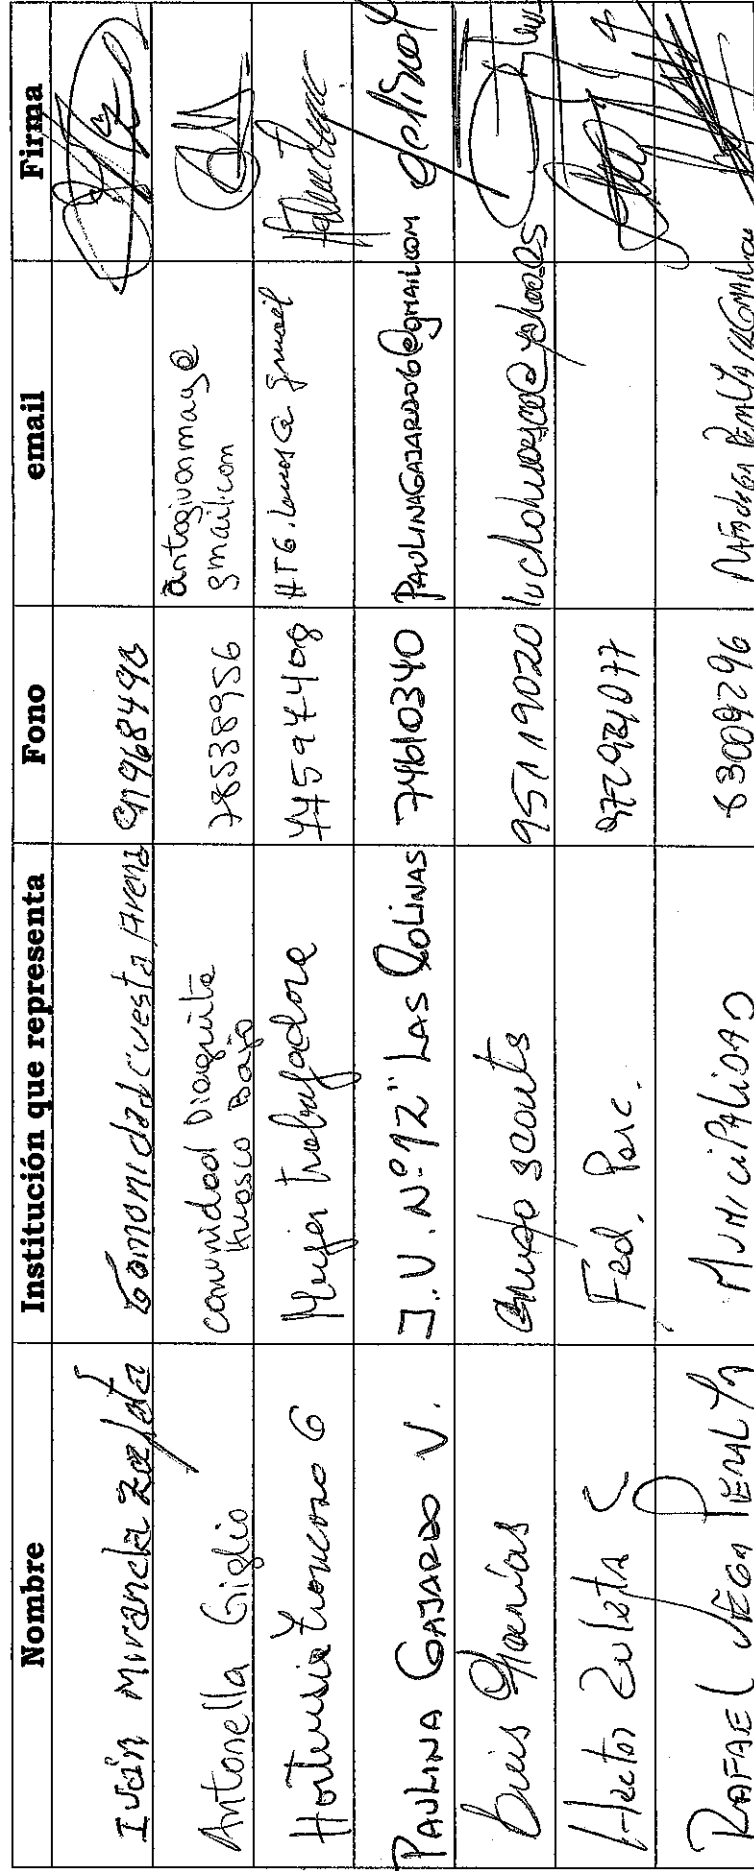 Nombre Institución que representa Fono email Firma
Iván Miranda Zuleta Comunidad Cuesta Arena 91968490
Antonella Giglio comunidad Diaguita Huasco Bajo 78538956 antogivanmay@gmail.com
Hortensia Troncoso G Mujer Trabajadora 44597408 HTG.
PAULINA GAJARDO V. J.V. Nº12 "LAS COLINAS 74610340 PAULINAGAJARDO6@GMAIL.COM
Luis grupo scouts 95119020 luchohuasco@yahoo.es
Hector Zuleta C Fed. Parc. 97292077
RAFAEL VEGA PERALTA MUNICIPALIDAD 83009296